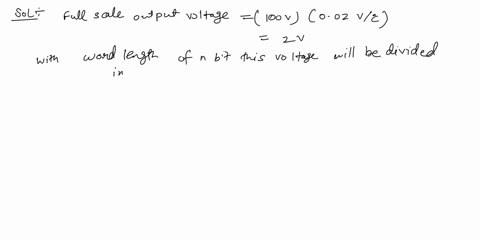 Sol:- Full scale output voltage = (100v) (0.02 v/c)
= 2v
with word length of n bit this voltage will be divided
in